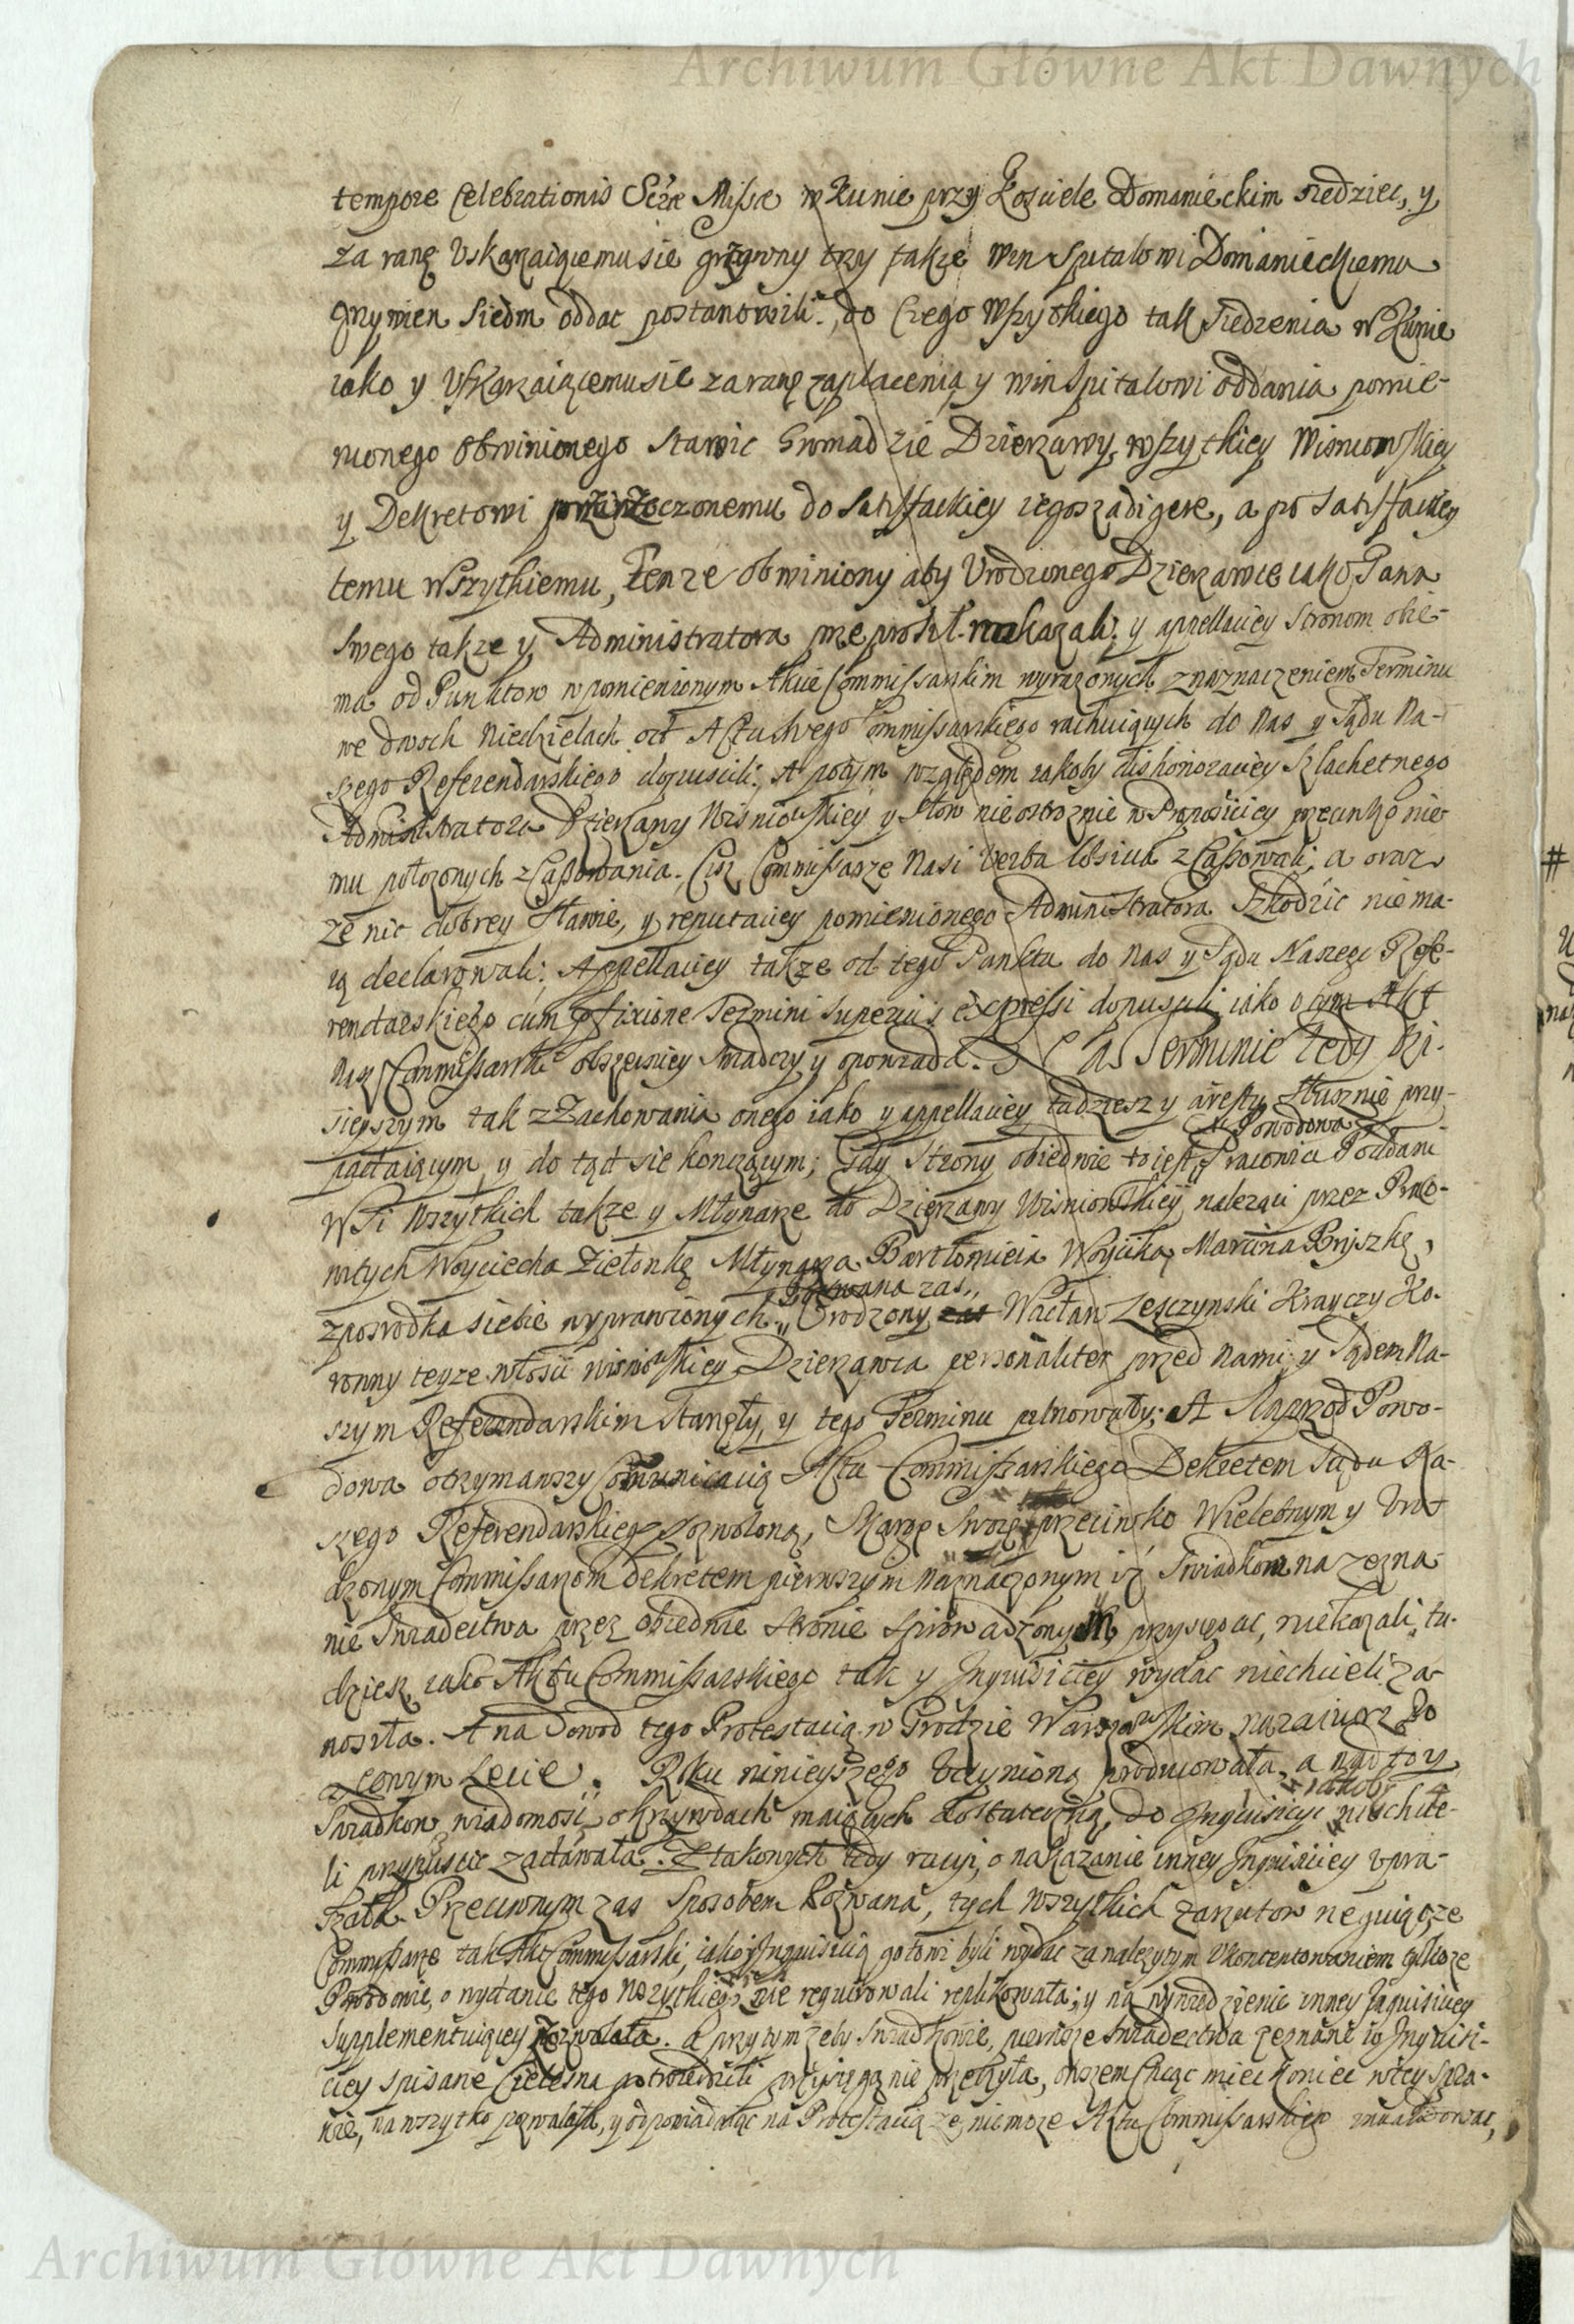 Archiwum Główne Akt Dawnych
tempore Celebrationis Scrae Missae w Kunie przy Kosciele Domanieckim siedziec, y
za ranę Uskarzaiącemu sie grzywny trzy takze win Spitalowi Domanieckiemu
grzywien Siedm oddac postanowili. do Czego wszytkiego tak siedzenia w Kunie
iako y Uskarzaiącemu sie za ranę zapłacenią y win Spitalowi oddania pomie-
nionego obwinionego stawic Gromadzie Dzierzawy wszytkiey Wisniowskiey
y Dekretowi pomienioczonemu do Satisfactiey iegosz adigere, a po Satisfactiey
temu wszytkiemu, tenze obwiniony aby Urodzonego Dzierzawce iako Pana
swego takze y Administratora przeprosił nakazali; y appellaciey Stronom obie-
ma od Punktow w pomienionym Akcie Commissarskim wyrazonych z naznaczeniem Terminu
we dwoch Niedzielach od Actu swego Commissarskiego rachuiących do Nas y Sądu Na-
szego Referendarskiego dopuscili; A potym względem iakoby dishonoraciey Szlachetnego
Administratora Dzierzawy Wisniowskiey y słow nieostroznie w Propositiey przeciwko nie-
mu połozonych zCassowania. Ciz Commissarze Nasi verba lesiva zCassowali, a oraz
ze nic dobrey sławie, y reputaciey pomienionego Administratora szkodzic nie ma-
ią declarowali; Appellaciey takze od tego Punktu do Nas y Sądu Naszego Refe-
rendarskiego cum praefixione Termini superius expressi dopuscili iako o tym Akt
Nasz Commissarski obszerniey swiadczy y opowiada. Na Terminie tedy dzi-
sieyszym tak z Zachowania onego iako y appellaciey tudziesz y arestu słusznie przy-
padaiącym, y do tąd sie konczącym; Gdy Strony obiedwie to iest Powodowa Pracowici Poddani
Wsi Wszytkich takze y Młynarze do Dzierzawy Wisniowskiey nalezący przez Praco-
witych Woyciecha Zielonkę Młynarza Bartłomieia Woycika, Marcina Bryszkę,
zposrodka siebie wyprawionych. Pozwana zas Urodzony Wacław Lesczynski Krayczy Ko-
ronny teyze włosci Wisniowskiey Dzierzawca personaliter przed Nami y Sądem Na-
szym Referendarskim stanęły, y tego Terminu pilnowały; A Naprzod Powo-
dowa otrzymawszy Communicacią Actu Commissarskiego Dekretem Sądu Na-
szego Referendarskiego pozwoloną, Skargę swoię przeciwko Wielebnym y Uro-
dzonym Commissarzom dekretem pierwszym naznaczonym iż Swiadkom na zezna-
nie Swiadectwa przez obiedwie stronie sprowadzonym, przysięgac, niekazali, tu-
dziesz iako Aktu Commissarskiego tak y Inquisiciey wydac niechcieli za-
nosiła. A na dowod tego Protestacią w Grodzie Warszawskim nazaiutrz po
Lecie. Roku ninieyszego Uczynioną producowała, a nad to y
Swiadkow, wiadomosc o krzywdach maiących dostateczną, do Inquisicyi iakoby niechcie-
li przypuscic zadawała. Z takowych tedy racyi, o nakazanie inney Inquisiciey upra-
szała. Przeciwnym zas sposobem Pozwana, tych wszytkich zarzutow neguiąc, ze
Commissarze tak Akt Commissarski, iako y Inquisicią gotowi byli wydac za nalezytym ukontentowaniem tylko ze
Powodowie, o wydanie tego wszytkiego nie requirowali replikowała; y na wywiedzienie inney Inquisiciey
supplementuiącey pozwalała. a przy tym zeby Swiadkowie, pierwsze Swiadectwa zeznane i w Inquisi-
ciey spisane Cielesną potwierdzili przysięgą nie przeczyła, owszem chcąc miec koniec w tey Spra-
wie, na wszytko pozwalała, y odpowiadaiąc na Protestacią ze nie moze Aktu Commissarskiego
Archiwum Główne Akt Dawnych